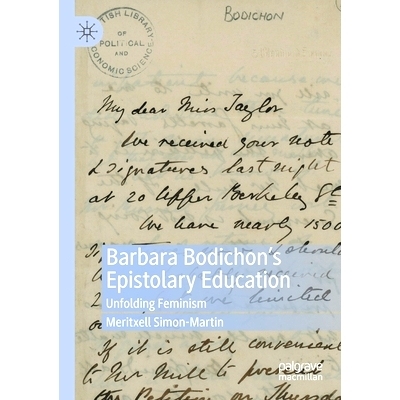 BODICHON
BRITISH LIBRARY
OF
POLITICAL
AND
ECONOMIC SCIENCE
My dear Miss Taylor
We received your note
& signatures last night
at 20 Upper Berkeley St
We have nearly 1500
Barbara Bodichon's
Epistolary Education
Unfolding Feminism
limited
Meritxell Simon-Martin
If it is still convenient
to Mr Mill to present
the Petition on Thursday
palgrave
macmillan